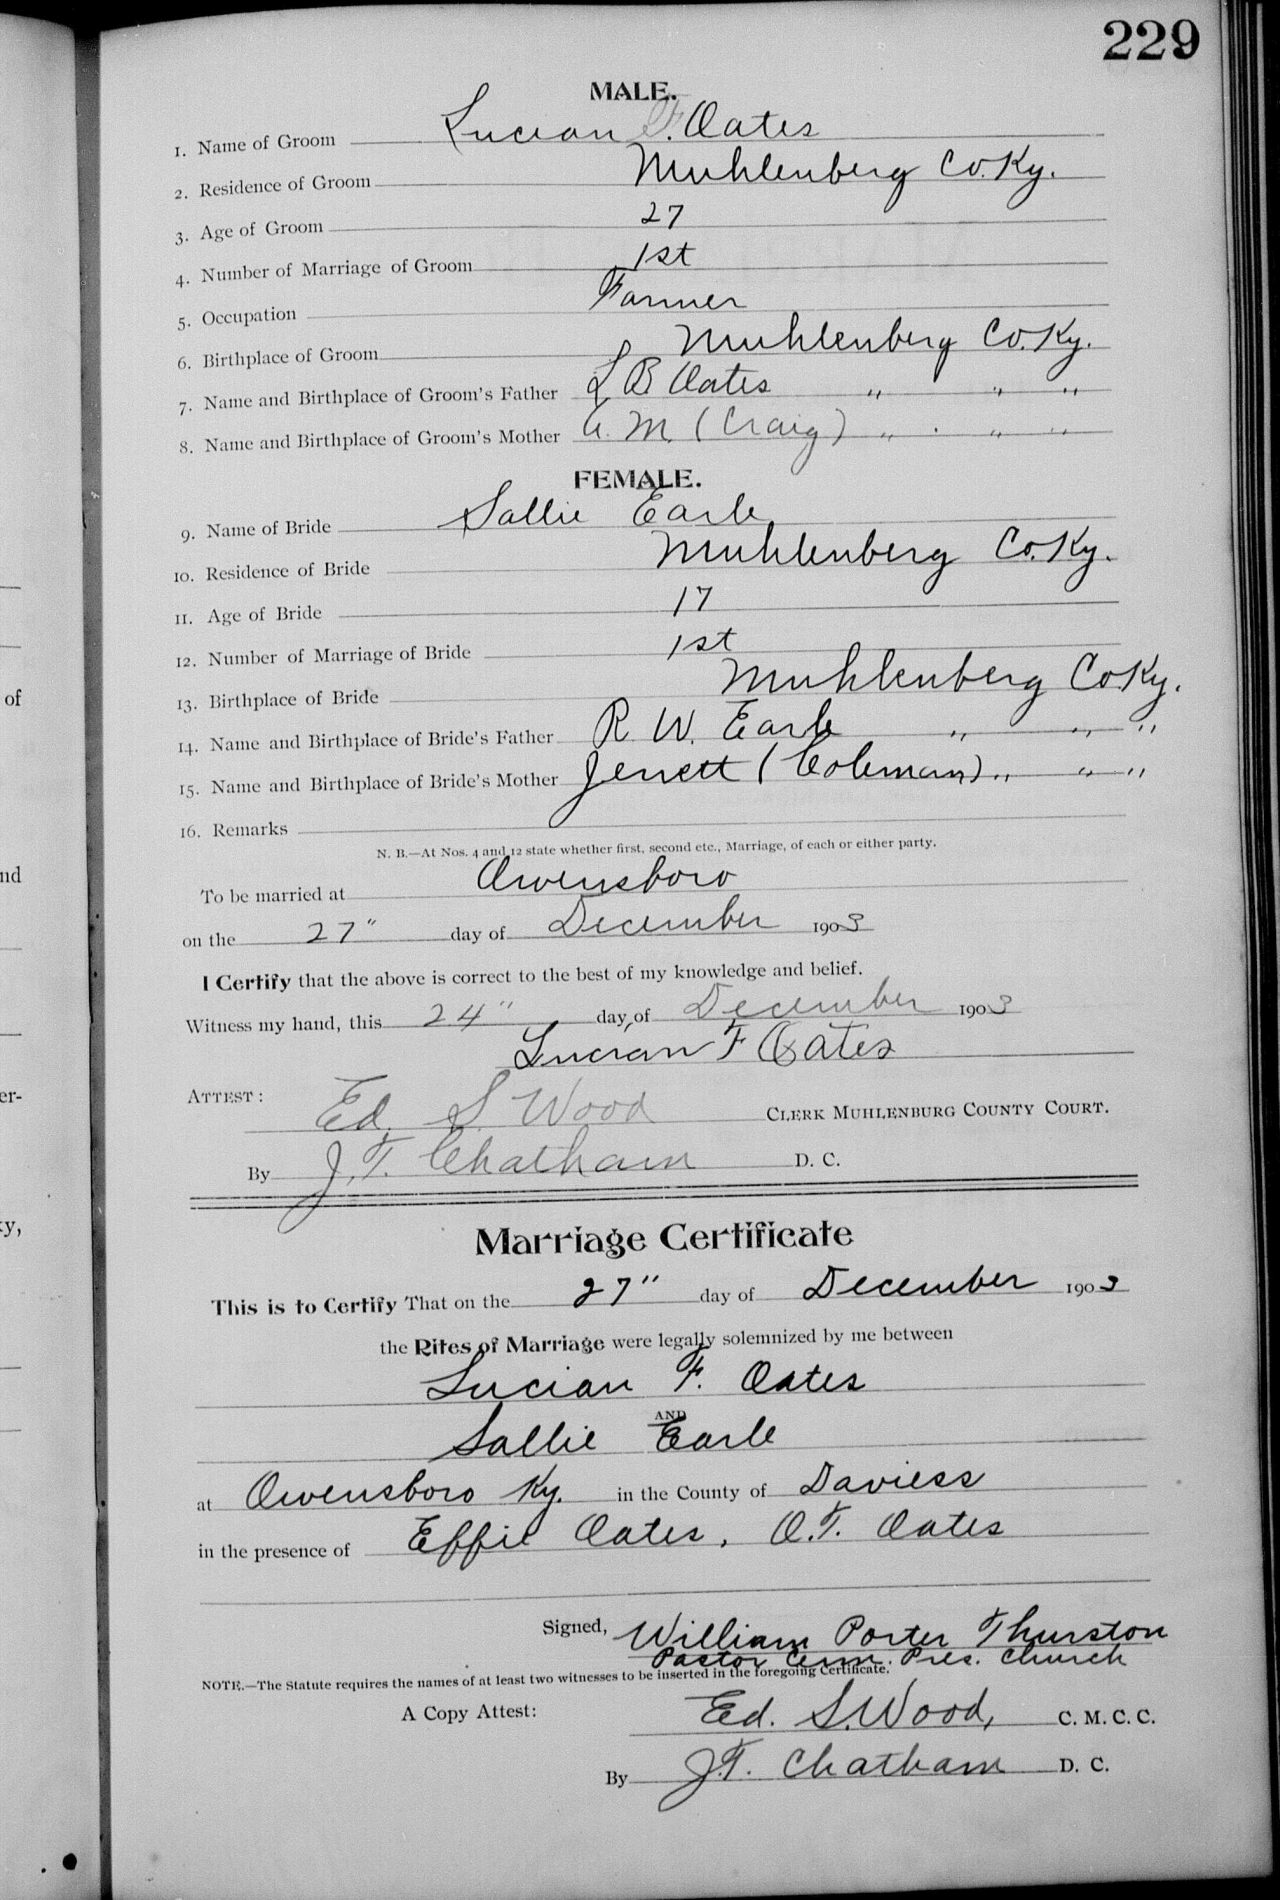 229
MALE.
1. Name of Groom Lucian F. Oates
2. Residence of Groom Muhlenberg Co. Ky.
3. Age of Groom 27
4. Number of Marriage of Groom 1st
5. Occupation Farmer
6. Birthplace of Groom Muhlenberg Co. Ky.
7. Name and Birthplace of Groom's Father L B Oates " " "
8. Name and Birthplace of Groom's Mother A. M. (Craig) " " "
FEMALE.
9. Name of Bride Sallie Earle
10. Residence of Bride Muhlenberg Co. Ky.
11. Age of Bride 17
12. Number of Marriage of Bride 1st
13. Birthplace of Bride Muhlenberg Co. Ky.
14. Name and Birthplace of Bride's Father R. W. Earle " " "
15. Name and Birthplace of Bride's Mother Jenett (Coleman) " " "
16. Remarks
N. B.—At Nos. 4 and 12 state whether first, second etc., Marriage, of each or either party.
To be married at Owensboro
on the 27" day of December 1903
I Certify that the above is correct to the best of my knowledge and belief.
Witness my hand, this 24" day of December 1903
Lucian F Oates
ATTEST: Ed. S. Wood CLERK MUHLENBURG COUNTY COURT.
By J. T. Chatham D. C.
Marriage Certificate
This is to Certify That on the 27" day of December 1903
the Rites of Marriage were legally solemnized by me between
Lucian F. Oates
AND
Sallie Earle
at Owensboro Ky. in the County of Daviess
in the presence of Effie Oates, O. T. Oates
Signed, William Porter Thurston
Pastor Cum. Pres. Church
NOTE.—The Statute requires the names of at least two witnesses to be inserted in the foregoing Certificate.
A Copy Attest: Ed. S. Wood, C. M. C. C.
By J. T. Chatham D. C.
of
nd
er-
ty,